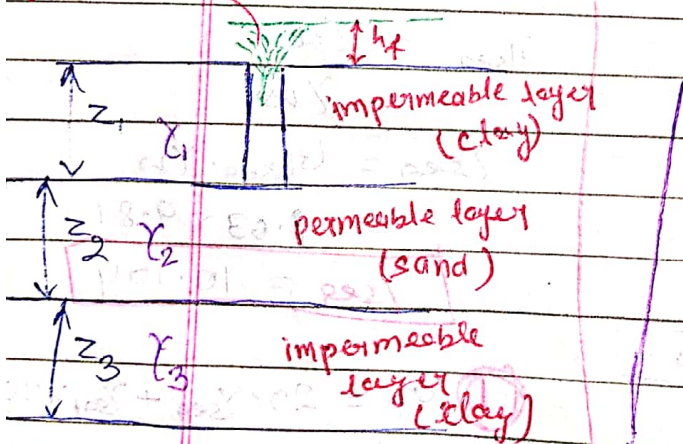 h_f
impermeable layer
(clay)
z₁ γ₁
permeable layer
(sand)
z₂ γ₂
impermeable
layer
(clay)
z₃ γ₃